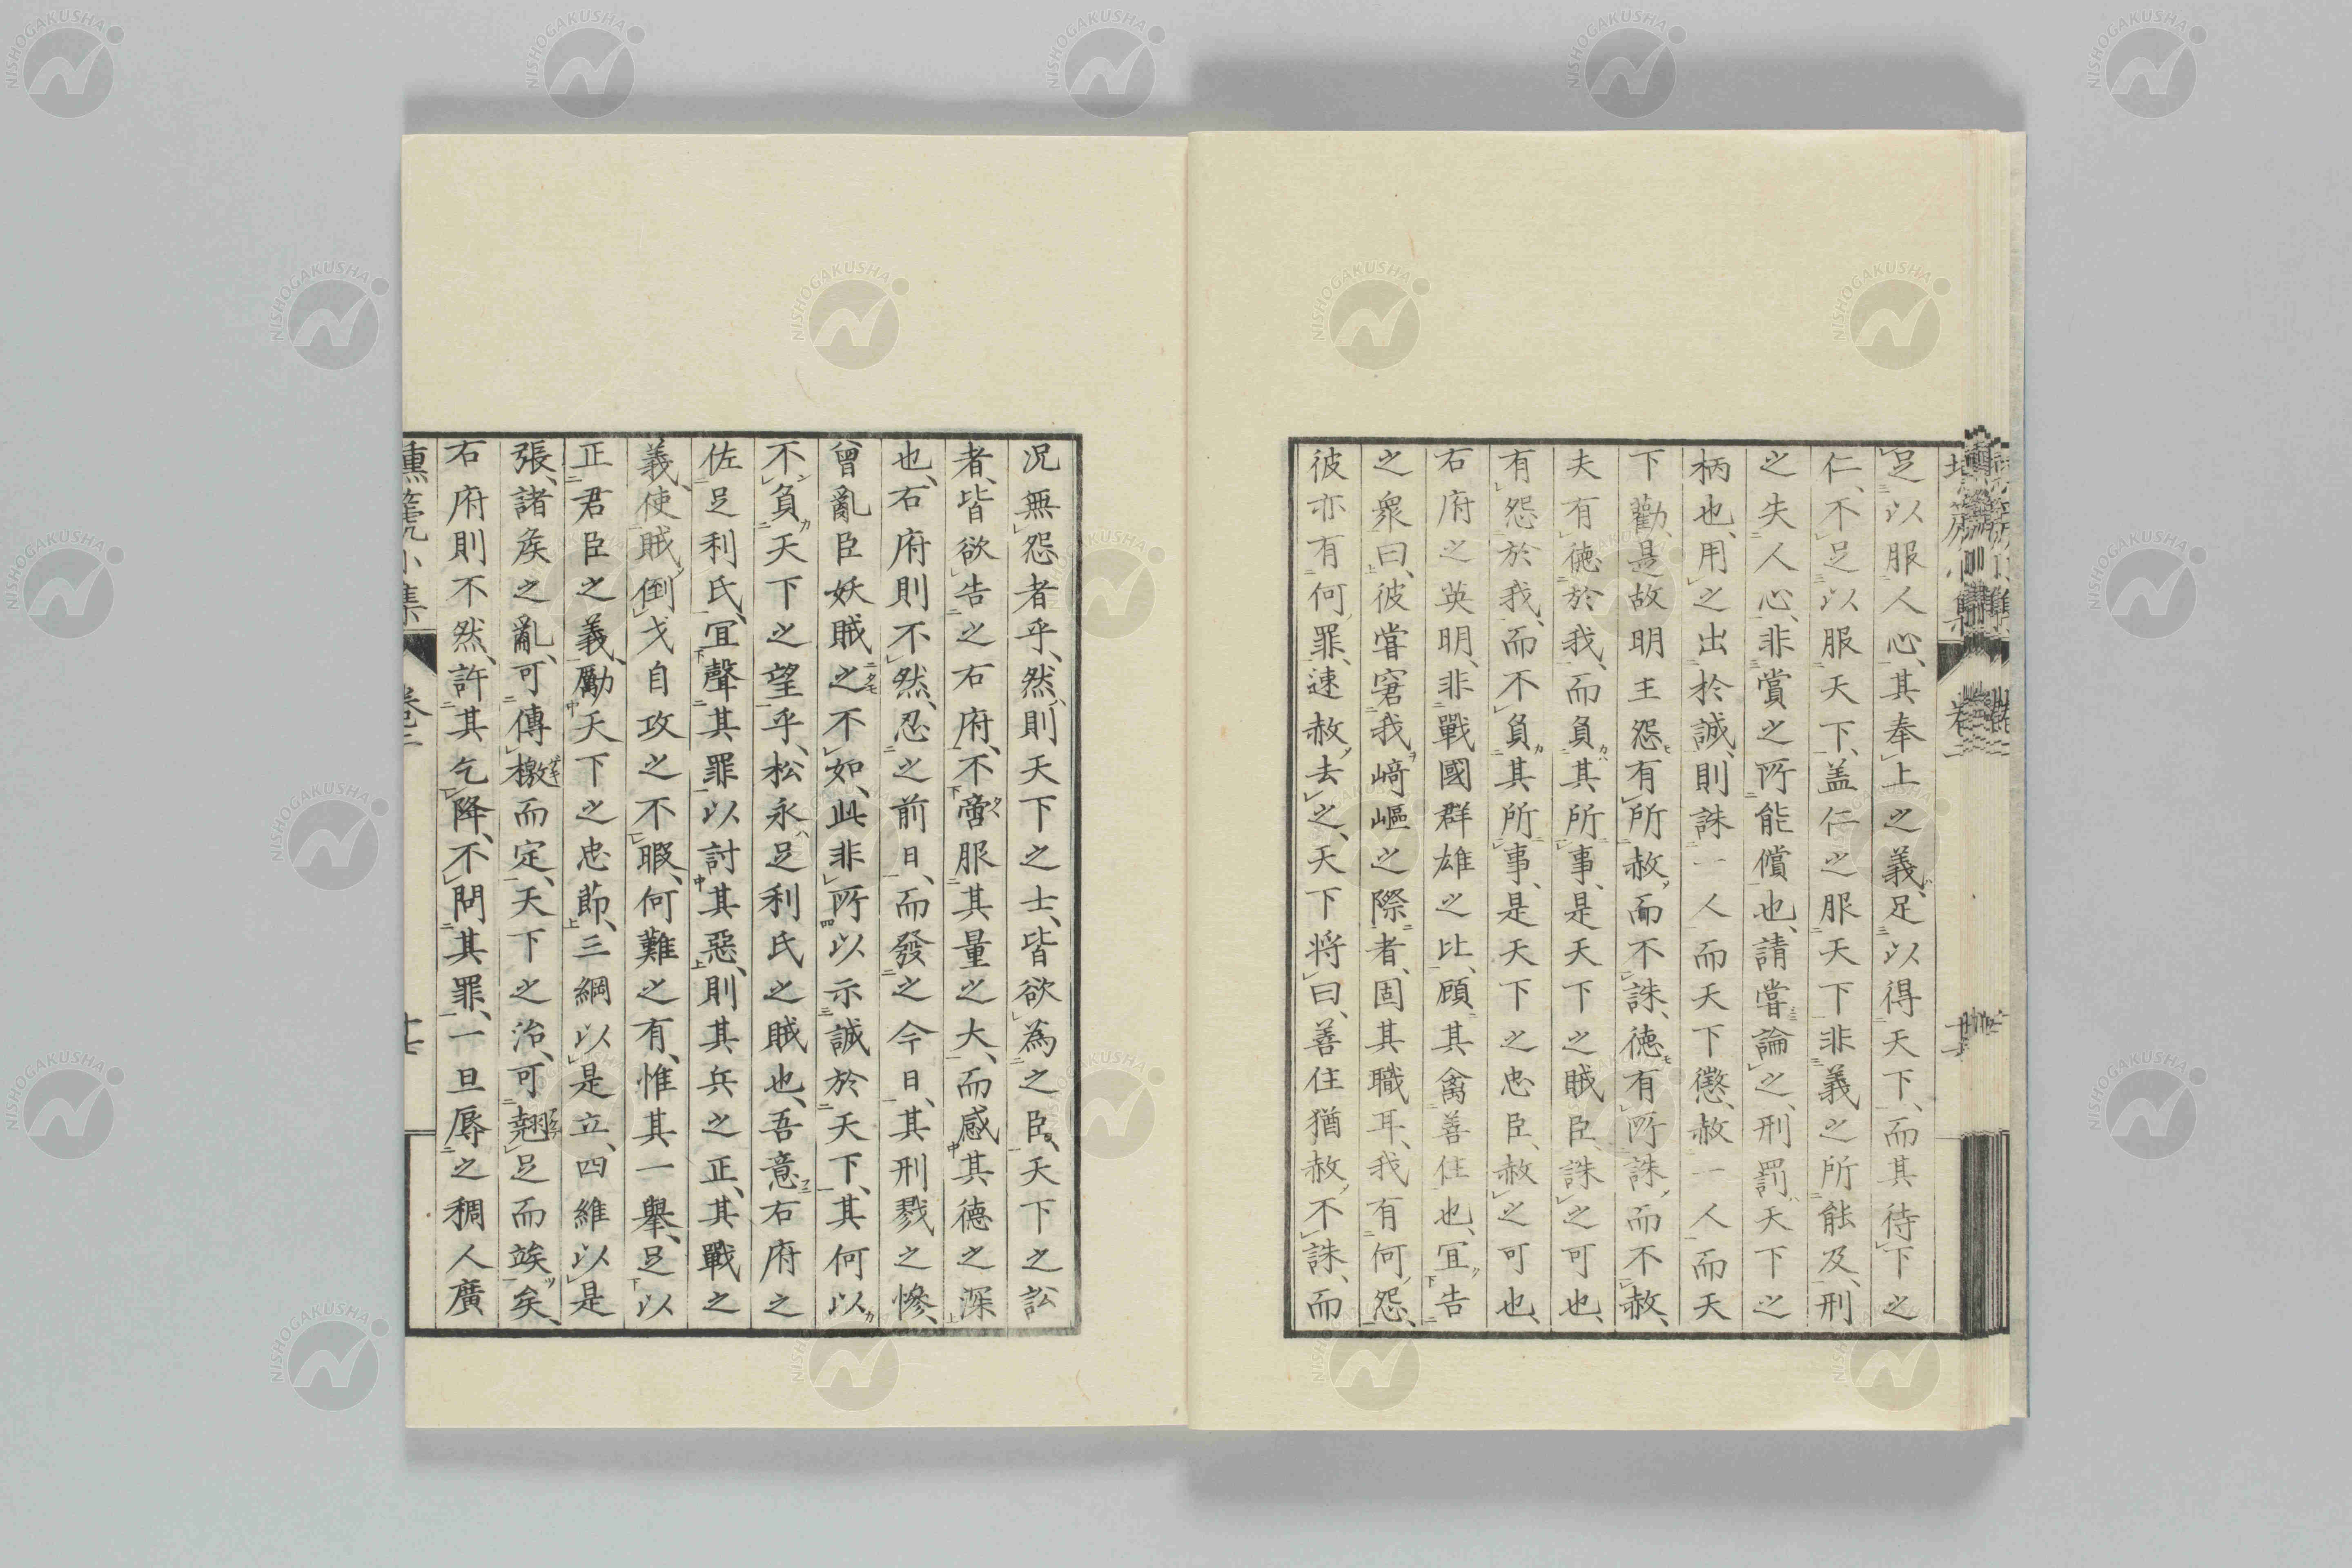 足以服人心、其奉上之義、足以得天下、而其待下之
仁、不足以服天下、盖仁之服天下、非義之所能及、刑
之失人心、非賞之所能償也、請嘗論之、刑罰天下之
柄也、用之出於誠、則誅一人而天下懲、赦一人而天
下勸、是故明主怨有所赦、而不誅、徳有所誅、而不赦、
夫有徳於我、而負其所事、是天下之賊臣、誅之可也、
有怨於我、而不負其所事、是天下之忠臣、赦之可也、
右府之英明、非戰國群雄之比、顧其禽善住也、宜告
之衆曰、彼嘗窘我﨑嶇之際者、固其職耳、我有何怨、
彼亦有何罪、速赦去之、天下将曰、善住猶赦、不誅、而
况無怨者乎、然則天下之士、皆欲為之臣、天下之訟
者、皆欲告之右府、不啻服其量之大、而感其徳之深
也、右府則不然、忍之前日、而發之今日、其刑戮之慘、
曾亂臣妖賊之不如、此非所以示誠於天下、其何以
不負天下之望乎、松永足利氏之賊也、吾意右府之
佐足利氏、宜聲其罪以討其惡、則其兵之正、其戰之
義、使賊倒戈自攻之不暇、何難之有、惟其一舉、足以
正君臣之義、勵天下之忠節、三綱以是立、四維以是
張、諸矦之亂、可傳檄而定、天下之治、可翹足而竢矣、
右府則不然、許其乞降、不問其罪、一旦辱之稠人廣
小集
卷二
十七